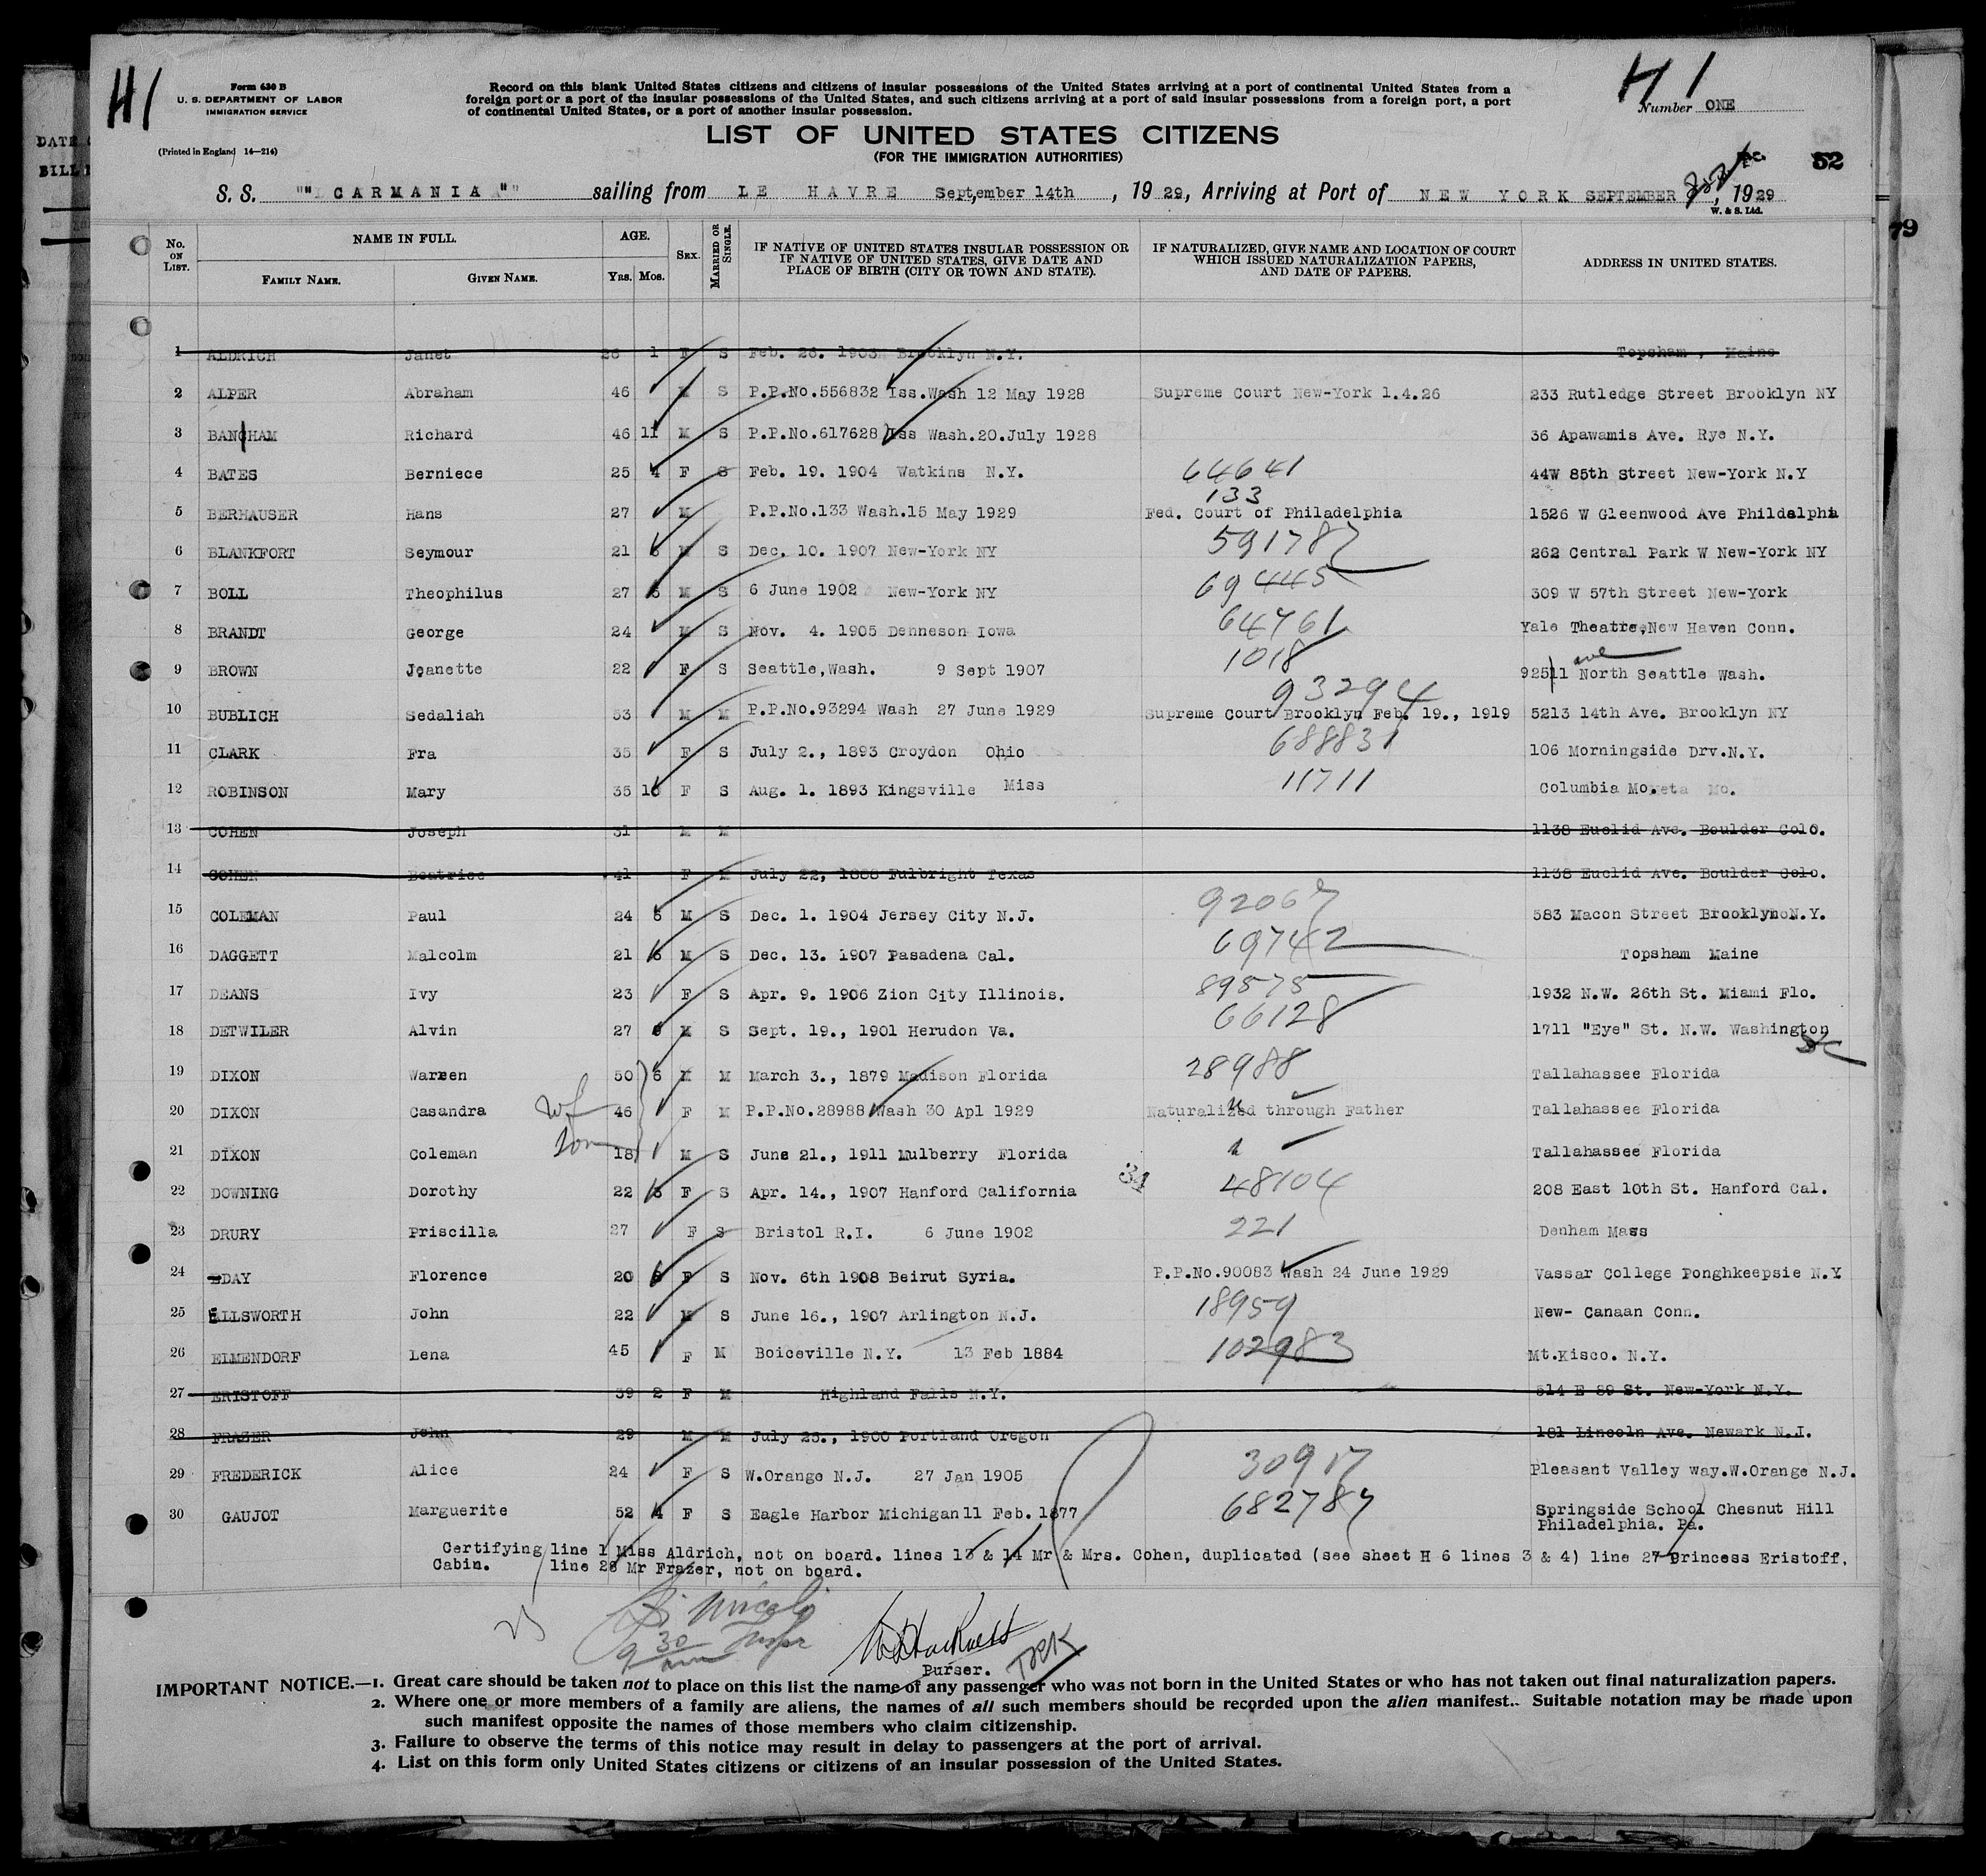 H1
Form 630 B
U. S. DEPARTMENT OF LABOR
IMMIGRATION SERVICE
(Printed in England 14—214)
Record on this blank United States citizens and citizens of insular possessions of the United States arriving at a port of continental United States from a
foreign port or a port of the insular possessions of the United States, and such citizens arriving at a port of said insular possessions from a foreign port, a port
of continental United States, or a port of another insular possession.
H 1
Number ONE
LIST OF UNITED STATES CITIZENS
(FOR THE IMMIGRATION AUTHORITIES)
52
S. S. "CARMANIA" sailing from LE HAVRE September 14th, 1929, Arriving at Port of NEW YORK SEPTEMBER , 1929
W. & S. Ltd.
DATE
BILL
79
No. ON LIST. NAME IN FULL. AGE. SEX. MARRIED OR SINGLE. IF NATIVE OF UNITED STATES INSULAR POSSESSION OR IF NATIVE OF UNITED STATES, GIVE DATE AND PLACE OF BIRTH (CITY OR TOWN AND STATE). IF NATURALIZED, GIVE NAME AND LOCATION OF COURT WHICH ISSUED NATURALIZATION PAPERS, AND DATE OF PAPERS. ADDRESS IN UNITED STATES.
FAMILY NAME. GIVEN NAME. YRS. MOS.
1 ALDRICH Janet 26 1 F S Feb. 26. 1903 Brooklyn N.Y. Topsham, Maine
2 ALPER Abraham 46 M S P.P.No.556832 Iss.Wash 12 May 1928 Supreme Court New-York 1.4.26 233 Rutledge Street Brooklyn NY
3 BANCHAM Richard 46 11 M S P.P.No.617628 Iss Wash.20.July 1928 36 Apawamis Ave. Rye N.Y.
4 BATES Berniece 25 4 F S Feb. 19. 1904 Watkins N.Y. 64641 44W 85th Street New-York N.Y
133
5 BERHAUSER Hans 27 M P.P.No.133 Wash.15 May 1929 Fed. Court of Philadelphia 1526 W Gleenwood Ave Phildelphia
6 BLANKFORT Seymour 21 M S Dec. 10. 1907 New-York NY 591787 262 Central Park W New-York NY
7 BOLL Theophilus 27 M S 6 June 1902 New-York NY 69445 309 W 57th Street New-York
8 BRANDT George 24 M S Nov. 4. 1905 Denneson Iowa 64761 Yale Theatre,New Haven Conn.
9 BROWN Jeanette 22 F S Seattle,Wash. 9 Sept 1907 1018 92511 ave North Seattle Wash.
93294
10 BUBLICH Sedaliah 53 M M P.P.No.93294 Wash 27 June 1929 Supreme Court Brooklyn Feb. 19., 1919 5213 14th Ave. Brooklyn NY
11 CLARK Fra 35 F S July 2., 1893 Croydon Ohio 688831 106 Morningside Drv.N.Y.
12 ROBINSON Mary 35 F S Aug. 1. 1893 Kingsville Miss 11711 Columbia Mo.
13 COHEN Joseph 31 M M 1138 Euclid Ave. Boulder Colo.
14 COHEN Beatrice 41 F M July 22, 1888 Fulbright Texas 1138 Euclid Ave. Boulder Colo.
15 COLEMAN Paul 24 M S Dec. 1. 1904 Jersey City N.J. 92067 583 Macon Street Brooklyn N.Y.
16 DAGGETT Malcolm 21 M S Dec. 13. 1907 Pasadena Cal. 69742 Topsham Maine
17 DEANS Ivy 23 F S Apr. 9. 1906 Zion City Illinois. 89575 1932 N.W. 26th St. Miami Flo.
18 DETWILER Alvin 27 M S Sept. 19., 1901 Herudon Va. 66128 1711 "Eye" St. N.W. Washington DC
19 DIXON Warren 50 6 M M March 3., 1879 Madison Florida 28988 Tallahassee Florida
20 DIXON Casandra wf 46 F M P.P.No.28988 Wash 30 Apl 1929 Naturalized through Father Tallahassee Florida
21 DIXON Coleman son 18 M S June 21., 1911 Mulberry Florida Tallahassee Florida
22 DOWNING Dorothy 22 F S Apr. 14., 1907 Hanford California 34 48104 208 East 10th St. Hanford Cal.
23 DRURY Priscilla 27 F S Bristol R.I. 6 June 1902 221 Denham Mass
24 EDAY Florence 20 F S Nov. 6th 1908 Beirut Syria. P.P.No.90083 Wash 24 June 1929 Vassar College Ponghkeepsie N.Y
25 ELLSWORTH John 22 M S June 16., 1907 Arlington N.J. 18959 New- Canaan Conn.
26 ELMENDORF Lena 45 F M Boiceville N.Y. 13 Feb 1884 102983 Mt.Kisco. N.Y.
27 ERISTOFF 39 2 F M Highland Falls N.Y. 514 E 89 St. New-York N.Y.
28 FRAZER John 29 M M July 25., 1900 Portland Oregon 181 Lincoln Ave. Newark N.J.
29 FREDERICK Alice 24 F S W.Orange N.J. 27 Jan 1905 30917 Pleasant Valley way.W.Orange N.J.
30 GAUJOT Marguerite 52 4 F S Eagle Harbor Michigan11 Feb. 1877 682787 Springside School Chesnut Hill
Philadelphia. Pa.
Certifying line 1 Miss Aldrich, not on board. lines 13 & 14 Mr & Mrs. Cohen, duplicated (see sheet H 6 lines 3 & 4) line 27 Princess Eristoff,
Cabin. line 28 Mr Frazer, not on board.
9 30 am
Purser.
IMPORTANT NOTICE.—1. Great care should be taken not to place on this list the name of any passenger who was not born in the United States or who has not taken out final naturalization papers.
2. Where one or more members of a family are aliens, the names of all such members should be recorded upon the alien manifest. Suitable notation may be made upon
such manifest opposite the names of those members who claim citizenship.
3. Failure to observe the terms of this notice may result in delay to passengers at the port of arrival.
4. List on this form only United States citizens or citizens of an insular possession of the United States.